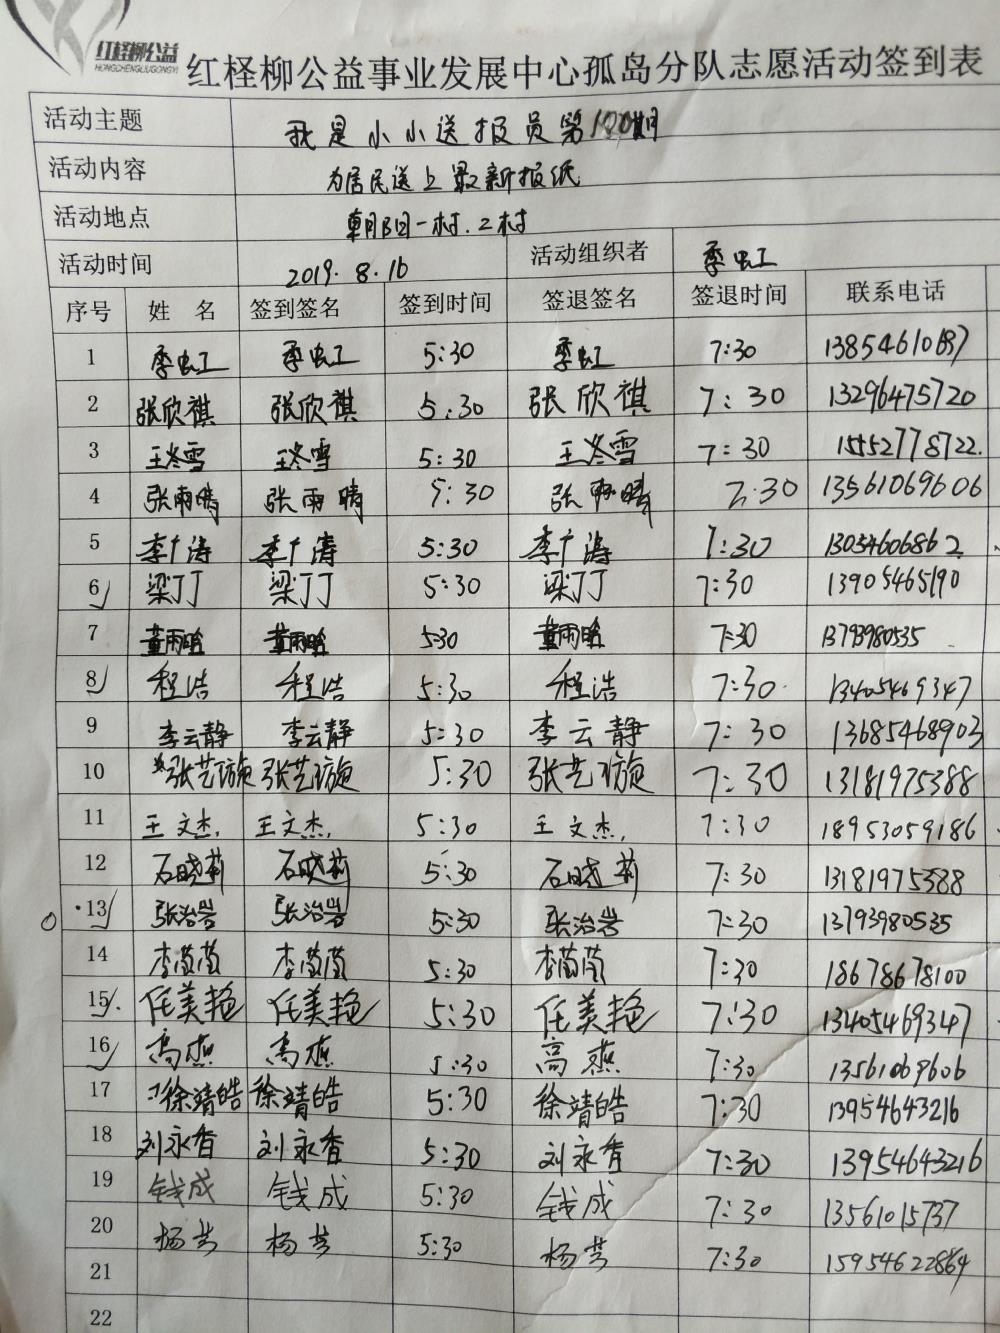 红柽柳公益
HONGCHENGLIUGONGYI
红柽柳公益事业发展中心孤岛分队志愿活动签到表
活动主题 我是小小送报员第100期
活动内容 为居民送上最新报纸
活动地点 朝阳一村.2村
活动时间 2019.8.16 活动组织者 季虹
序号 姓名 签到签名 签到时间 签退签名 签退时间 联系电话
1 季虹 季虹 5:30 季虹 7:30
2 张欣祺 张欣祺 5:30 张欣祺 7:30 13296475720
3 王冬雪 王冬雪 5:30 王冬雪 7:30 15552778722.
4 张雨晴 张雨晴 5:30 张雨晴 7:30 13561069606
5 李广涛 李广涛 5:30 李广涛 7:30 13034606862
6 梁汀丁 梁汀丁 5:30 梁汀丁 7:30 13905465190
7 董雨晗 董雨晗 5:30 董雨晗 7:30 13793980535
8 程浩 程浩 5:30 程浩 7:30 13405469347
9 李云静 李云静 5:30 李云静 7:30 13685468903
10 张艺璇 张艺璇 5:30 张艺璇 7:30 13181975388
11 王文杰. 王文杰. 5:30 王文杰. 7:30 18953059186
12 石晓莉 石晓莉 5:30 石晓莉 7:30 13181975388
13 张治岩 张治岩 5:30 张治岩 7:30 13793980535
14 李茵茵 李茵茵 5:30 李茵茵 7:30 18678678100
15 任美艳 任美艳 5:30 任美艳 7:30 13405469347
16 高燕 高燕 5:30 高燕 7:30 13561069606
17 徐靖皓 徐靖皓 5:30 徐靖皓 7:30 13954643216
18 刘永香 刘永香 5:30 刘永香 7:30 13954643216
19 钱成 钱成 5:30 钱成 7:30 13561015737
20 杨芳 杨芳 5:30 杨芳 7:30 15954622864
21
22